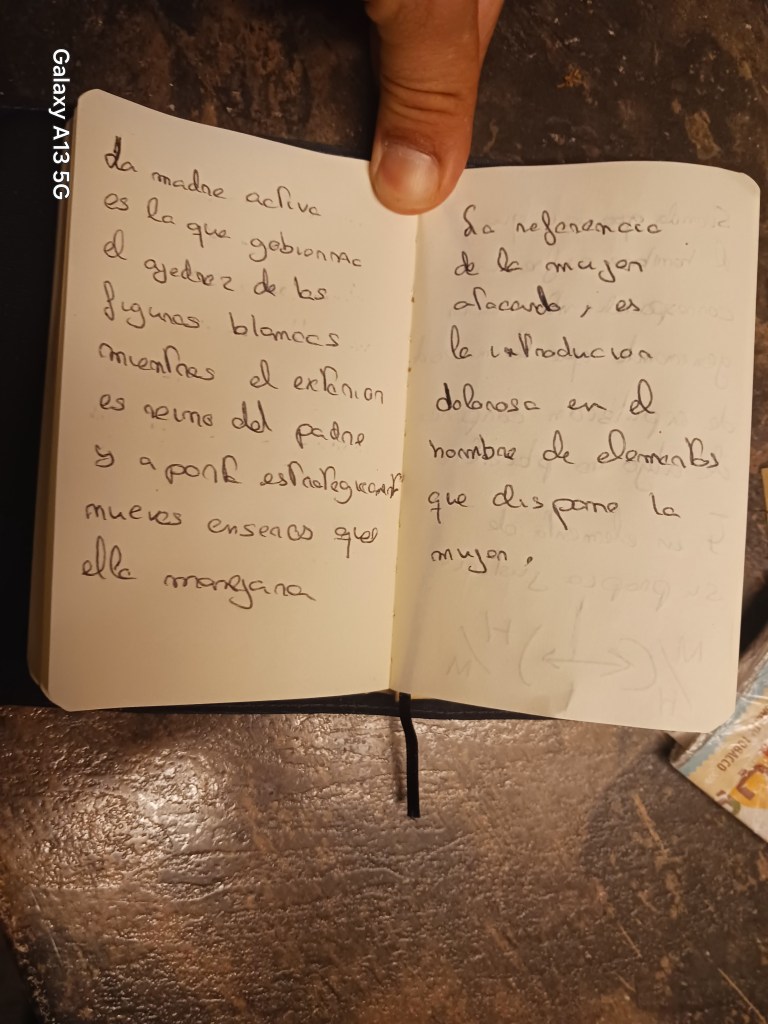 Galaxy A13 5G
La madre activa
es la que gobierna
el ajedrez de las
figuras blancas
mientras el exterior
es reino del padre
y aporta
nuevos enseres que
ella manejara
La referencia
de la mujer
atacando, es
la introducion
dolorosa en el
hombre de elementos
que dispone la
mujer.